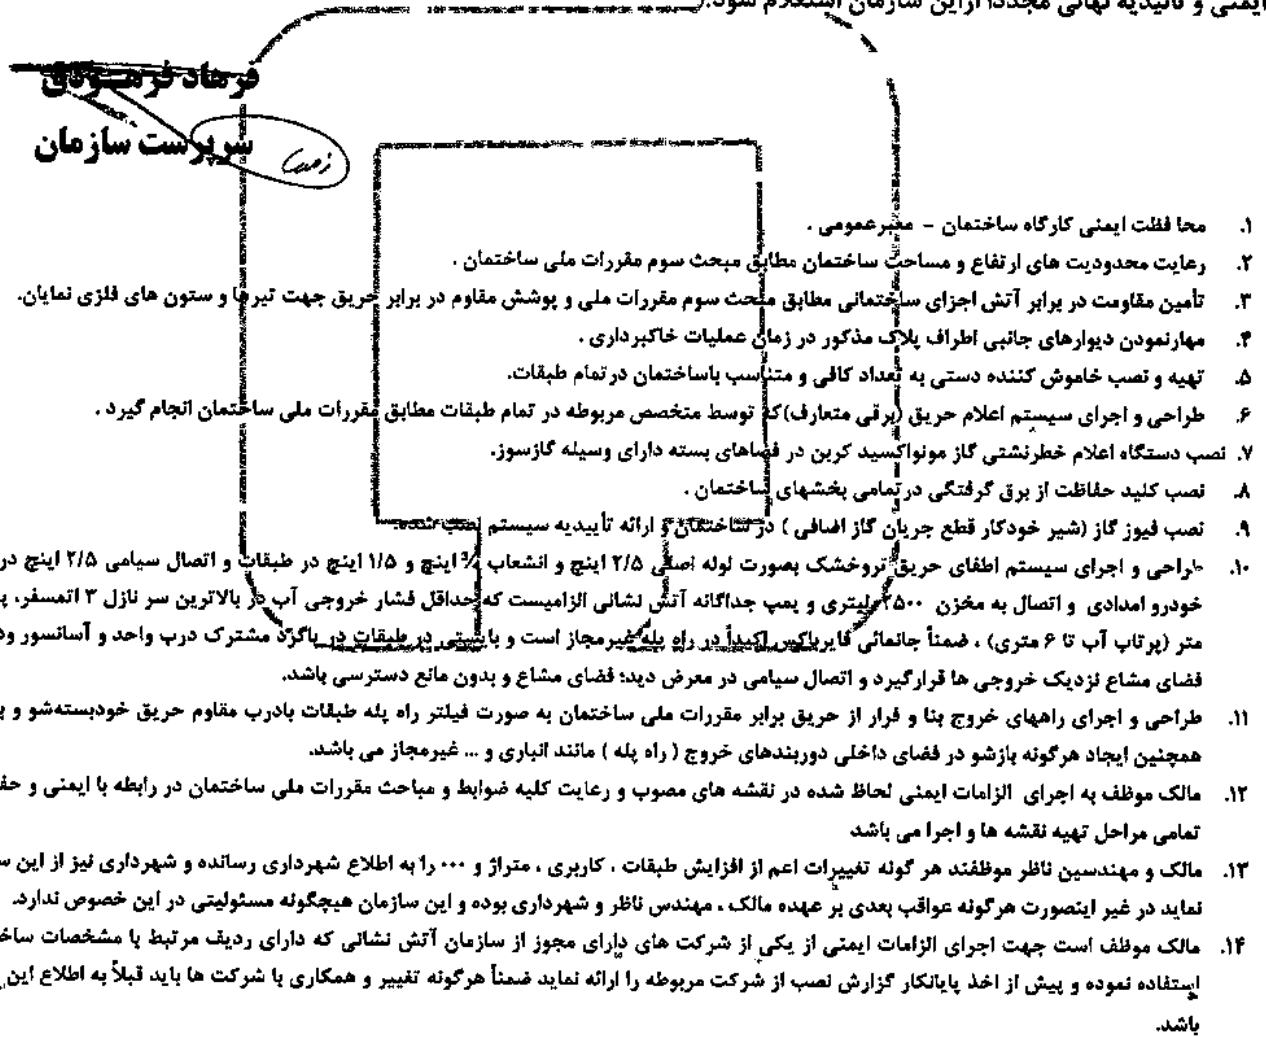 ایمنی و تائیدیه نهائی مجدداً ازاین سازمان استعلام شود.
فرهاد فرهـــودی
سرپرست سازمان
۱. محا فظت ایمنی کارگاه ساختمان – معبرعمومی .
۲. رعایت محدودیت های ارتفاع و مساحت ساختمان مطابق مبحث سوم مقررات ملی ساختمان .
۳. تأمین مقاومت در برابر آتش اجزای ساختمانی مطابق مبحث سوم مقررات ملی و پوشش مقاوم در برابر حریق جهت تیرها و ستون های فلزی نمایان.
۴. مهارنمودن دیوارهای جانبی اطراف پلاک مذکور در زمان عملیات خاکبرداری .
۵. تهیه و نصب خاموش کننده دستی به تعداد کافی و متناسب باساختمان درتمام طبقات.
۶. طراحی و اجرای سیستم اعلام حریق (برقی متعارف)که توسط متخصص مربوطه در تمام طبقات مطابق مقررات ملی ساختمان انجام گیرد .
۷. نصب دستگاه اعلام خطرنشتی گاز مونواکسید کربن در فضاهای بسته دارای وسیله گازسوز.
۸. نصب کلید حفاظت از برق گرفتگی درتمامی بخشهای ساختمان .
۹. نصب فیوز گاز (شیر خودکار قطع جریان گاز اضافی ) در ساختمان و ارائه تأییدیه سیستم نصب شده.
۱۰. طراحی و اجرای سیستم اطفای حریق تروخشک بصورت لوله اصلی ۲/۵ اینچ و انشعاب ¾ اینچ و ۱/۵ اینچ در طبقات و اتصال سیامی ۲/۵ اینچ در
خودرو امدادی و اتصال به مخزن ۲۵۰۰ لیتری و پمپ جداگانه آتش نشانی الزامیست که حداقل فشار خروجی آب در بالاترین سر نازل ۳ اتمسفر،
متر (پرتاب آب تا ۶ متری) ، ضمناً جانمائی فایرباکس اکیداً در راه پله غیرمجاز است و بایستی در طبقات در پاگرد مشترک درب واحد و آسانسور
فضای مشاع نزدیک خروجی ها قرارگیرد و اتصال سیامی در معرض دید؛ فضای مشاع و بدون مانع دسترسی باشد.
۱۱. طراحی و اجرای راههای خروج بنا و فرار از حریق برابر مقررات ملی ساختمان به صورت فیلتر راه پله طبقات بادرب مقاوم حریق خودبسته‌شو و
همچنین ایجاد هرگونه بازشو در فضای داخلی دوربندهای خروج ( راه پله ) مانند انباری و ... غیرمجاز می باشد.
۱۲. مالک موظف به اجرای الزامات ایمنی لحاظ شده در نقشه های مصوب و رعایت کلیه ضوابط و مباحث مقررات ملی ساختمان در رابطه با ایمنی و
تمامی مراحل تهیه نقشه ها و اجرا می باشد
۱۳. مالک و مهندسین ناظر موظفند هر گونه تغییرات اعم از افزایش طبقات ، کاربری ، متراژ و ... را به اطلاع شهرداری رسانده و شهرداری نیز از این
نماید در غیر اینصورت هرگونه عواقب بعدی بر عهده مالک ، مهندس ناظر و شهرداری بوده و این سازمان هیچگونه مسئولیتی در این خصوص ندارد.
۱۴. مالک موظف است جهت اجرای الزامات ایمنی از یکی از شرکت های دارای مجوز از سازمان آتش نشانی که دارای ردیف مرتبط با مشخصات
استفاده نموده و پیش از اخذ پایانکار گزارش نصب از شرکت مربوطه را ارائه نماید ضمناً هرگونه تغییر و همکاری با شرکت ها باید قبلاً به اطلاع این
باشد.